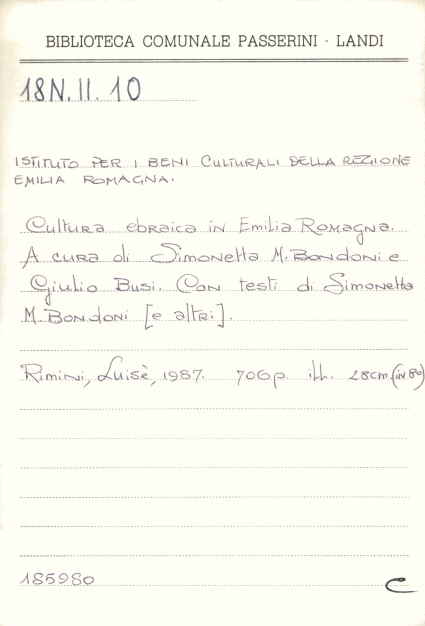 BIBLIOTECA COMUNALE PASSERINI - LANDI
18N.II.10
ISTITUTO PER I BENI CULTURALI DELLA REGIONE
EMILIA ROMAGNA.
Cultura ebraica in Emilia Romagna.
A cura di Simonetta M. Bondoni e
Giulio Busi. Con testi di Simonetta
M. Bondoni [e altri].
Rimini, Luisè, 1987. 706p. ill. 28cm.(in 8º)
185980 C